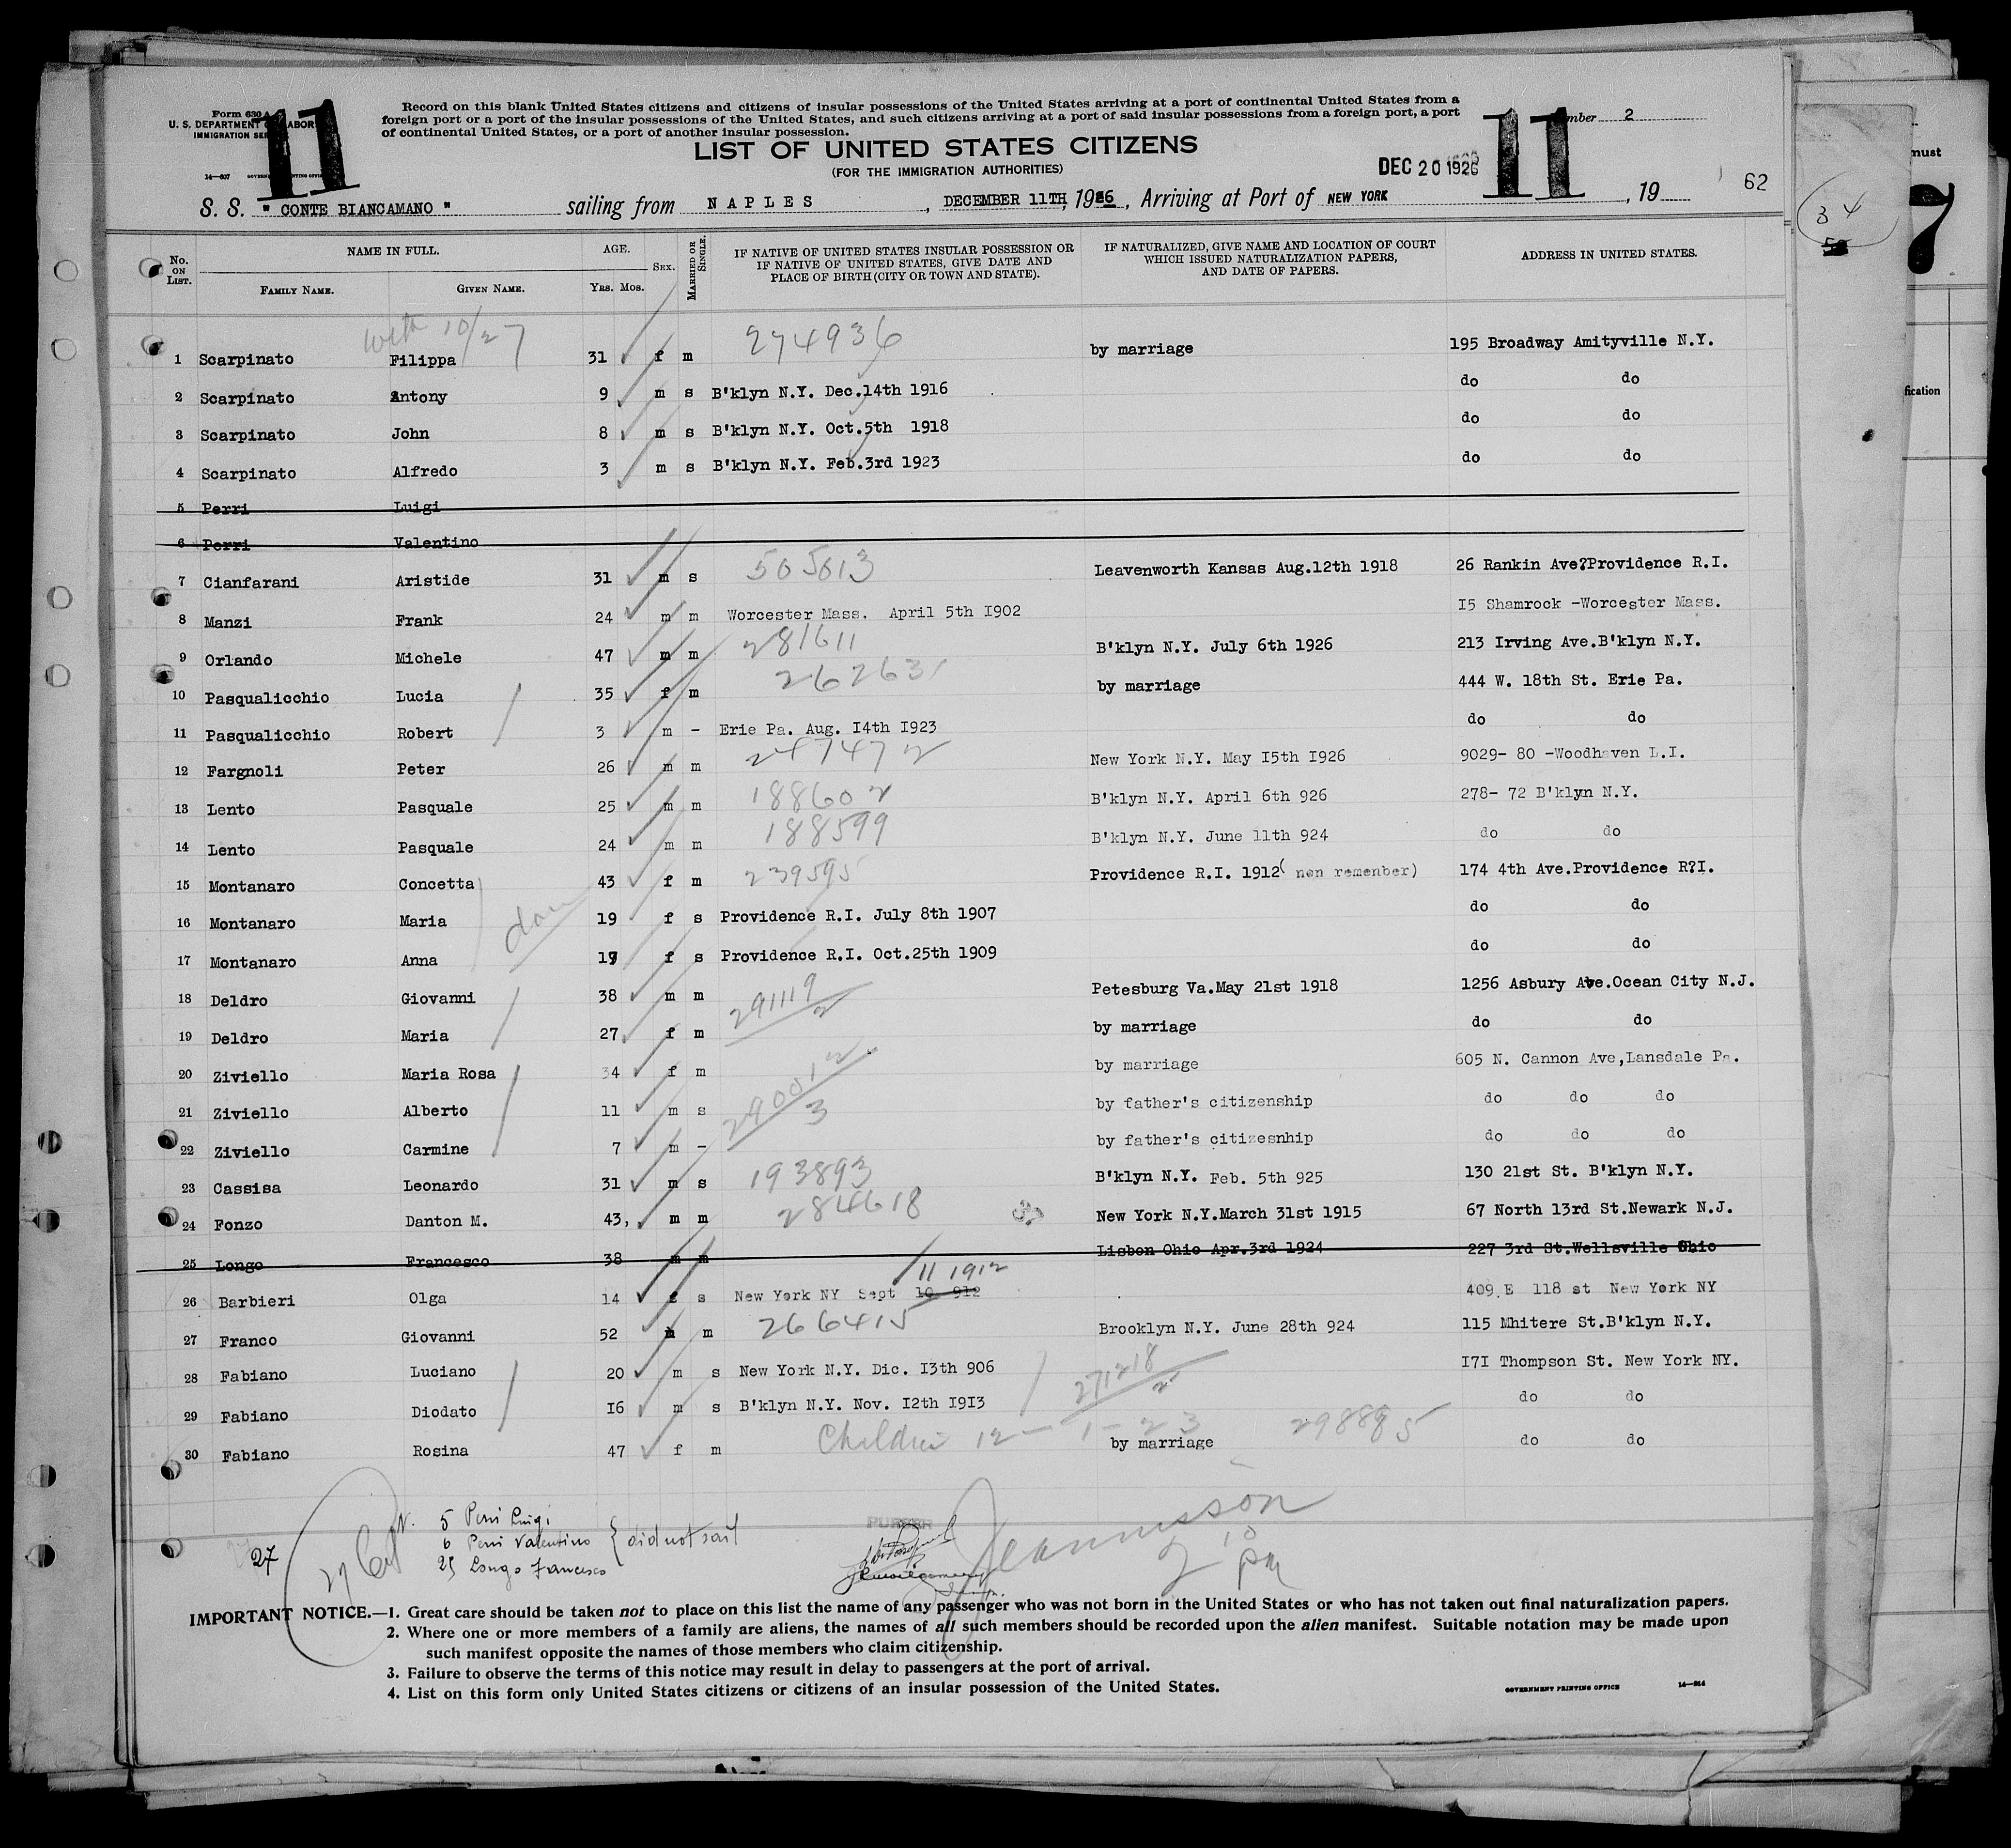 Form 630 A
U. S. DEPARTMENT OF LABOR
IMMIGRATION SERVICE
14—607
11
Record on this blank United States citizens and citizens of insular possessions of the United States arriving at a port of continental United States from a
foreign port or a port of the insular possessions of the United States, and such citizens arriving at a port of said insular possessions from a foreign port, a port
of continental United States, or a port of another insular possession.
11
Number 2
LIST OF UNITED STATES CITIZENS
(FOR THE IMMIGRATION AUTHORITIES)
DEC 20 1926
62
S. S. " CONTE BIANCAMANO " sailing from NAPLES, DECEMBER 11TH, 1926, Arriving at Port of NEW YORK, 19
34
7
must
fication
No. ON LIST. NAME IN FULL. AGE. SEX. MARRIED OR SINGLE. IF NATIVE OF UNITED STATES INSULAR POSSESSION OR IF NATIVE OF UNITED STATES, GIVE DATE AND PLACE OF BIRTH (CITY OR TOWN AND STATE). IF NATURALIZED, GIVE NAME AND LOCATION OF COURT WHICH ISSUED NATURALIZATION PAPERS, AND DATE OF PAPERS. ADDRESS IN UNITED STATES.
FAMILY NAME. GIVEN NAME. YRS. MOS.
with 10/27
1 Scarpinato Filippa 31 f m 274936 by marriage 195 Broadway Amityville N.Y.
2 Scarpinato Antony 9 m s B'klyn N.Y. Dec.14th 1916 do do
3 Scarpinato John 8 m s B'klyn N.Y. Oct.5th 1918 do do
4 Scarpinato Alfredo 3 m s B'klyn N.Y. Feb.3rd 1923 do do
5 Perri Luigi
6 Perri Valentino
7 Cianfarani Aristide 31 m s 505013 Leavenworth Kansas Aug.12th 1918 26 Rankin Ave?Providence R.I.
8 Manzi Frank 24 m m Worcester Mass. April 5th I902 I5 Shamrock -Worcester Mass.
9 Orlando Michele 47 m m 281611 B'klyn N.Y. July 6th 1926 213 Irving Ave.B'klyn N.Y.
10 Pasqualicchio Lucia 35 f m 262631 by marriage 444 W. 18th St. Erie Pa.
11 Pasqualicchio Robert 3 m - Erie Pa. Aug. I4th I923 do do
12 Fargnoli Peter 26 m m 247472 New York N.Y. May I5th I926 9029- 80 -Woodhaven L.I.
13 Lento Pasquale 25 m m 188602 B'klyn N.Y. April 6th 926 278- 72 B'klyn N.Y.
14 Lento Pasquale 24 m m 188599 B'klyn N.Y. June 11th 924 do do
15 Montanaro Concetta 43 f m 239595 Providence R.I. 1912( non remenber) 174 4th Ave.Providence R?I.
16 Montanaro Maria 19 f s Providence R.I. July 8th 1907 do do
17 Montanaro Anna 17 f s Providence R.I. Oct.25th 1909 do do
18 Deldro Giovanni 38 m m 291119 2 Petesburg Va.May 21st 1918 1256 Asbury Ave.Ocean City N.J.
19 Deldro Maria 27 f m by marriage do do
20 Ziviello Maria Rosa 34 f m by marriage 605 N. Cannon Ave,Lansdale Pa.
21 Ziviello Alberto 11 m s 290012 3 by father's citizenship do do do
22 Ziviello Carmine 7 m - by father's citizesnhip do do do
23 Cassisa Leonardo 31 m s 193893 B'klyn N.Y. Feb. 5th 925 130 21st St. B'klyn N.Y.
24 Fonzo Danton M. 43, m m 284618 New York N.Y.March 31st 1915 67 North 13rd St.Newark N.J.
25 Longo Francesco 38 m m Lisbon Ohio Apr.3rd 1924 227 3rd St.Wellsville Ohio
11 1912
26 Barbieri Olga 14 f s New York NY Sept 10 912 409 E 118 st New York NY
27 Franco Giovanni 52 m m 266415 Brooklyn N.Y. June 28th 924 115 Mhitere St.B'klyn N.Y.
28 Fabiano Luciano 20 m s New York N.Y. Dic. I3th 906 271218 2 I7I Thompson St. New York NY.
29 Fabiano Diodato I6 m s B'klyn N.Y. Nov. I2th I9I3 do do
30 Fabiano Rosina 47 f m Children 12 - 1 - 23 by marriage 298885 do do
27
5 Perri Luigi
6 Perri Valentino } did not sail
25 Longo Francesco
PURSER
IMPORTANT NOTICE.—1. Great care should be taken not to place on this list the name of any passenger who was not born in the United States or who has not taken out final naturalization papers.
2. Where one or more members of a family are aliens, the names of all such members should be recorded upon the alien manifest. Suitable notation may be made upon
such manifest opposite the names of those members who claim citizenship.
3. Failure to observe the terms of this notice may result in delay to passengers at the port of arrival.
4. List on this form only United States citizens or citizens of an insular possession of the United States.
GOVERNMENT PRINTING OFFICE